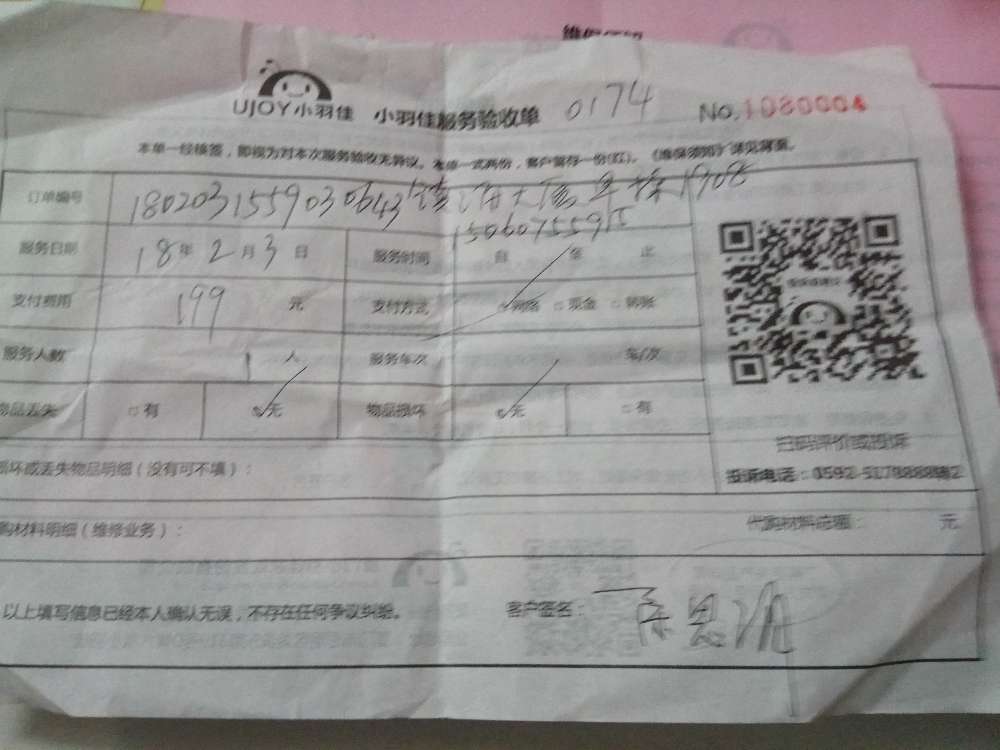 UJOY小羽佳 小羽佳服务验收单 0174 No.1080004
本单一经核签,即视为对本次服务验收无异议。本单一式两份,客户留存一份(红)。《维保须知》详见背面。
订单编号 1802031559030643
服务日期 18年2月3日 服务时间 自 至 止
支付费用 199元 支付方式 网络 □现金 □转账
服务人数 1人 服务车次 车/次
物品丢失 □有 无 物品损坏 无 □有
扫码评价或投诉
损坏或丢失物品明细(没有可不填):
购材料明细(维修业务): 代购材料总额: 元
以上填写信息已经本人确认无误,不存在任何争议纠纷。 客户签名: